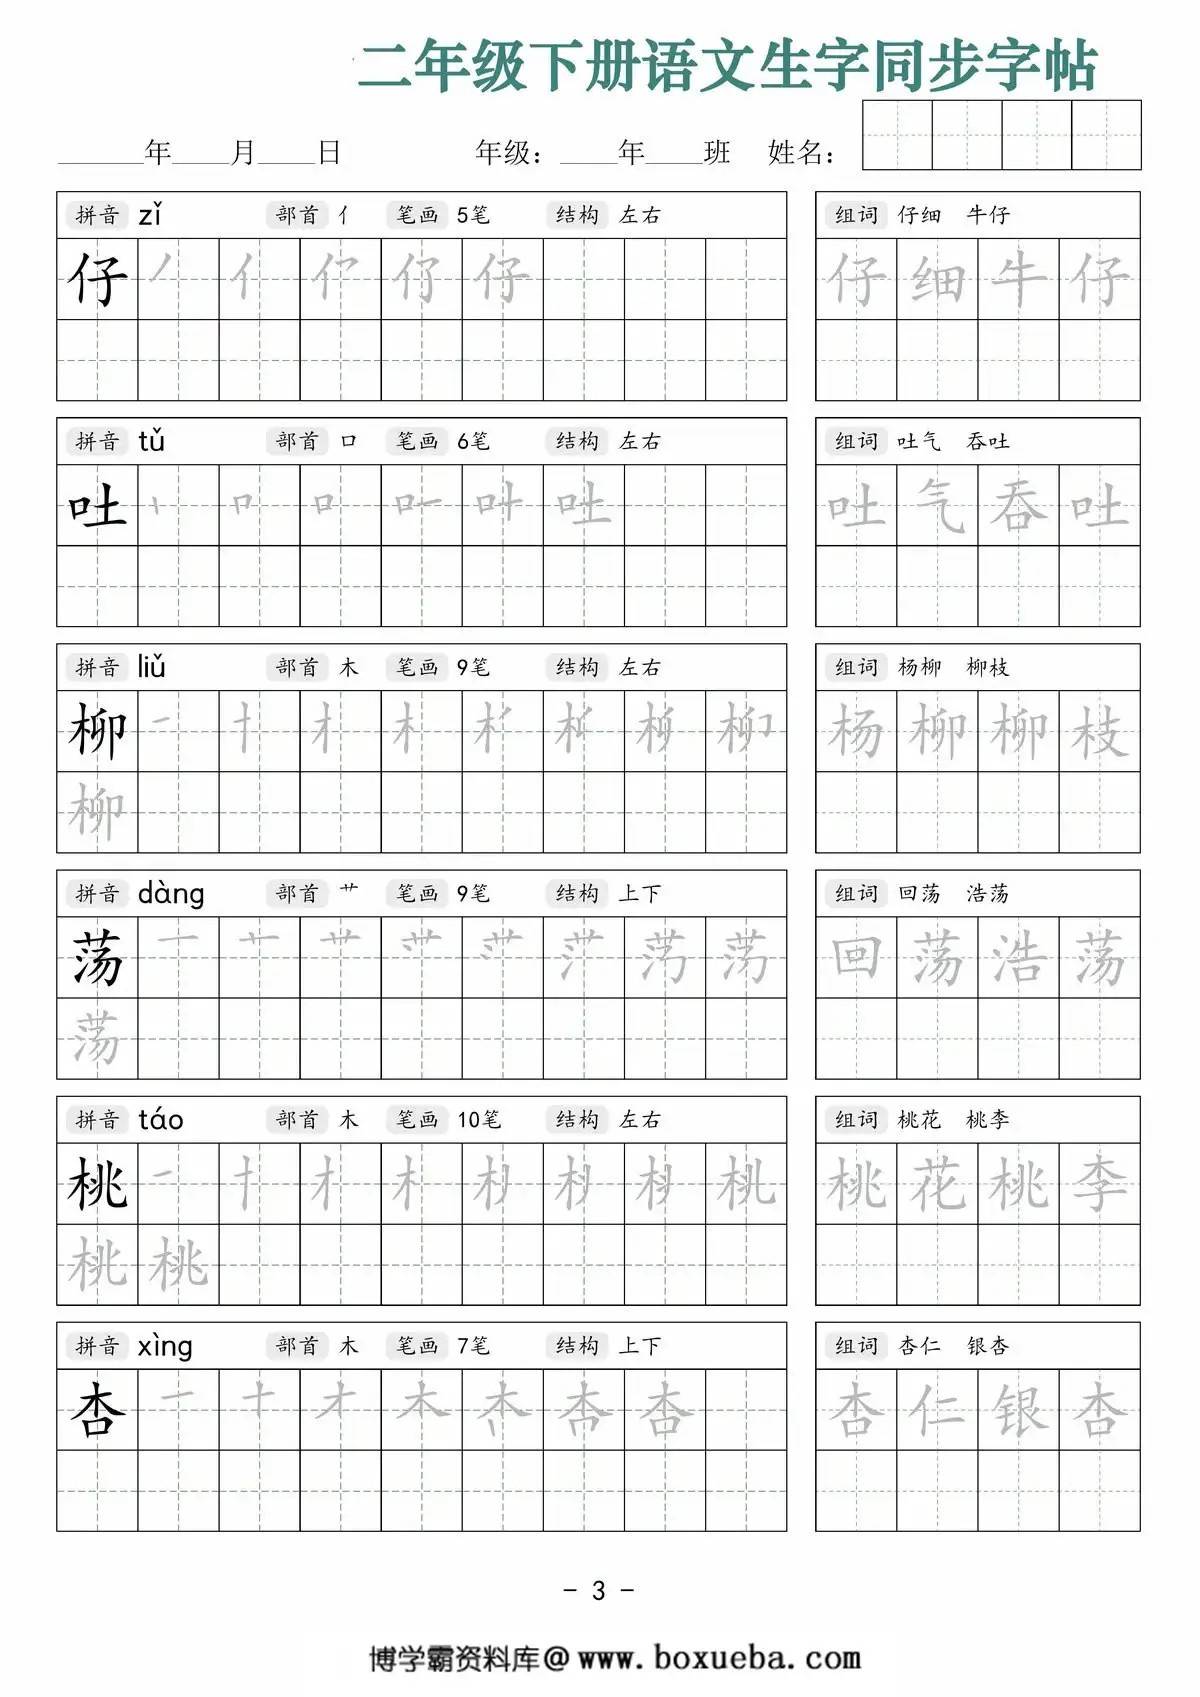 二年级下册语文生字同步字帖
____年____月____日 年级：____年____班 姓名：
拼音 zǐ 部首 亻 笔画 5笔 结构 左右 组词 仔细 牛仔
仔 仔 仔细牛仔
拼音 tǔ 部首 口 笔画 6笔 结构 左右 组词 吐气 吞吐
吐 吐 吐气吞吐
拼音 liǔ 部首 木 笔画 9笔 结构 左右 组词 杨柳 柳枝
柳 杨柳柳枝
柳
拼音 dàng 部首 艹 笔画 9笔 结构 上下 组词 回荡 浩荡
荡 回荡浩荡
荡
拼音 táo 部首 木 笔画 10笔 结构 左右 组词 桃花 桃李
桃 桃花桃李
桃 桃
拼音 xìng 部首 木 笔画 7笔 结构 上下 组词 杏仁 银杏
杏 杏 杏仁银杏
- 3 -
博学霸资料库@www.boxueba.com